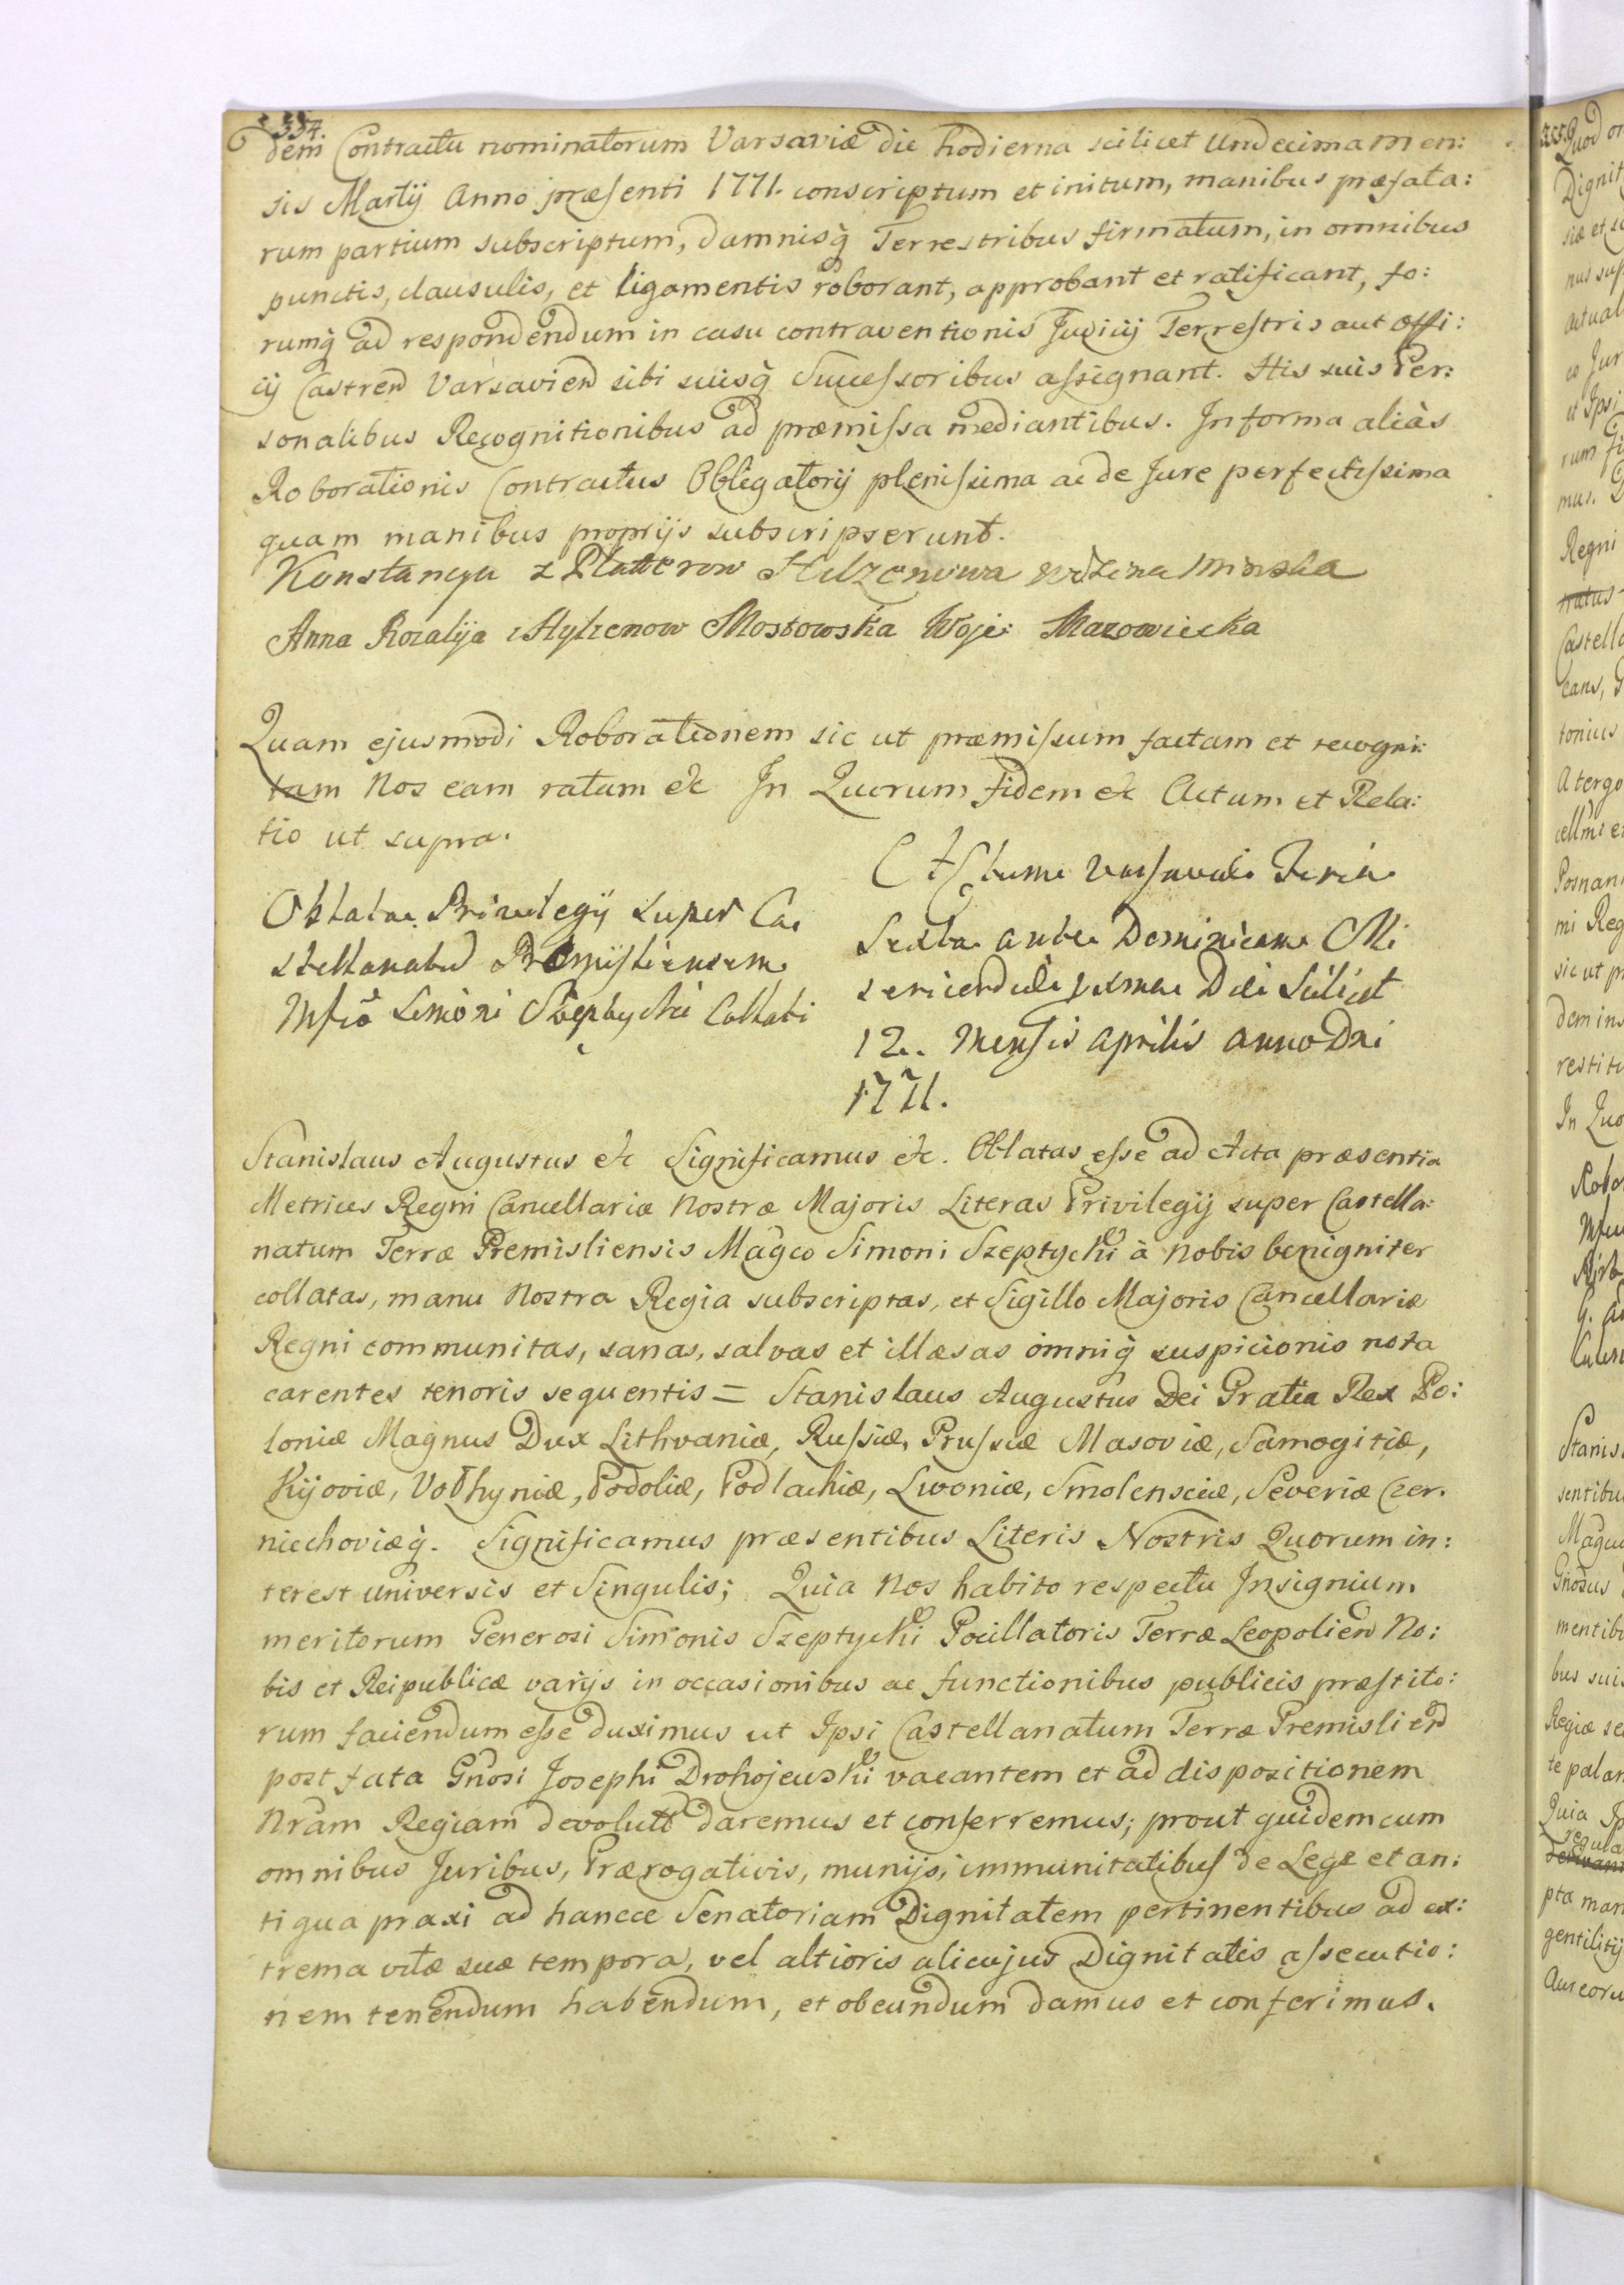 334.
dem Contractu nominatorum Varsaviæ die hodierna scilicet Undecima men:
sis Martij Anno præsenti 1771. conscriptum et initum, manibus præfata:
rum partium subscriptum, damnisq̀ Terrestribus firmatum, in omnibus
punctis, clausulis, et ligamentis roborant, approbant et ratificant, fo:
rumq̀ ad respondendum in casu contraventionis Judicij Terrestris aut Offi:
cij Castren Varsavien sibi suisq̀ Successoribus assignant. His suis Per:
sonalibus Recognitionibus ad præmissa mediantibus. In forma aliàs
Roborationis Contractus Obligatorij plenissima ac de Jure perfectissima
quam manibus proprijs subscripserunt.
Konstancya z Platerow Hilzenowa Wdzina Minska
Anna Rozalija z Hylzenow Mostowska Woje: Mazowiecka
Quam ejusmodi Roborationem sic ut præmissum factam et recogni:
tam Nos eam ratam &c In Quorum fidem &c Actum et Rela:
tio ut supra.
Oblatae Privilegij super Ca
stellanatum Premysliensem
Mfco Simoni Szeptycki Collati
Actum Varsaviae Feria
Sexta ante Dominicam Mi
sericordiae proxima Die Scilicet
12. Mensis Aprilis Anno Dni
1771.
Stanislaus Augustus &c Significamus &c. Oblatas esse ad Acta præsentia
Metrices Regni Cancellariæ Nostræ Majoris Literas Privilegij super Castella:
natum Terræ Premisliensis Magco Simoni Szeptycki à Nobis benigniter
collatas, manu Nostra Regia subscriptas, et Sigillo Majoris Cancellariæ
Regni communitas, sanas, salvas et illæsas omniq̀ suspicionis nota
carentes tenoris sequentis = Stanislaus Augustus Dei Gratia Rex Po:
loniæ Magnus Dux Lithvaniæ, Russiæ, Prussiæ Masoviæ, Samogitiæ,
Kijoviæ, Volhyniæ, Podoliæ, Podlachiæ, Livoniæ, Smolensciæ, Severiæ Czer.
niechoviæq̀. Significamus præsentibus Literis Nostris Quorum in:
terest universis et Singulis; Quia Nos habito respectu Insignium
meritorum Generosi Simonis Szeptycki Pocillatoris Terræ Leopolien No:
bis et Reipublicæ varijs in occasionibus ac functionibus publicis præstito:
rum faciendum esse duximus ut Ipsi Castellanatum Terræ Premislien
post fata Gnosi Josephi Drohojewski vacantem et ad dispositionem
Nram Regiam devolutt daremus et conferremus; prout quidem cum
omnibus Juribus, Prærogativis, munijs, immunitatibus de Lege et an:
tiqua praxi ad hancce Senatoriam Dignitatem pertinentibus ad ex:
trema vitæ suæ tempora, vel altioris alicujus Dignitatis assecutio:
nem tenendum habendum, et obeundum damus et conferimus.